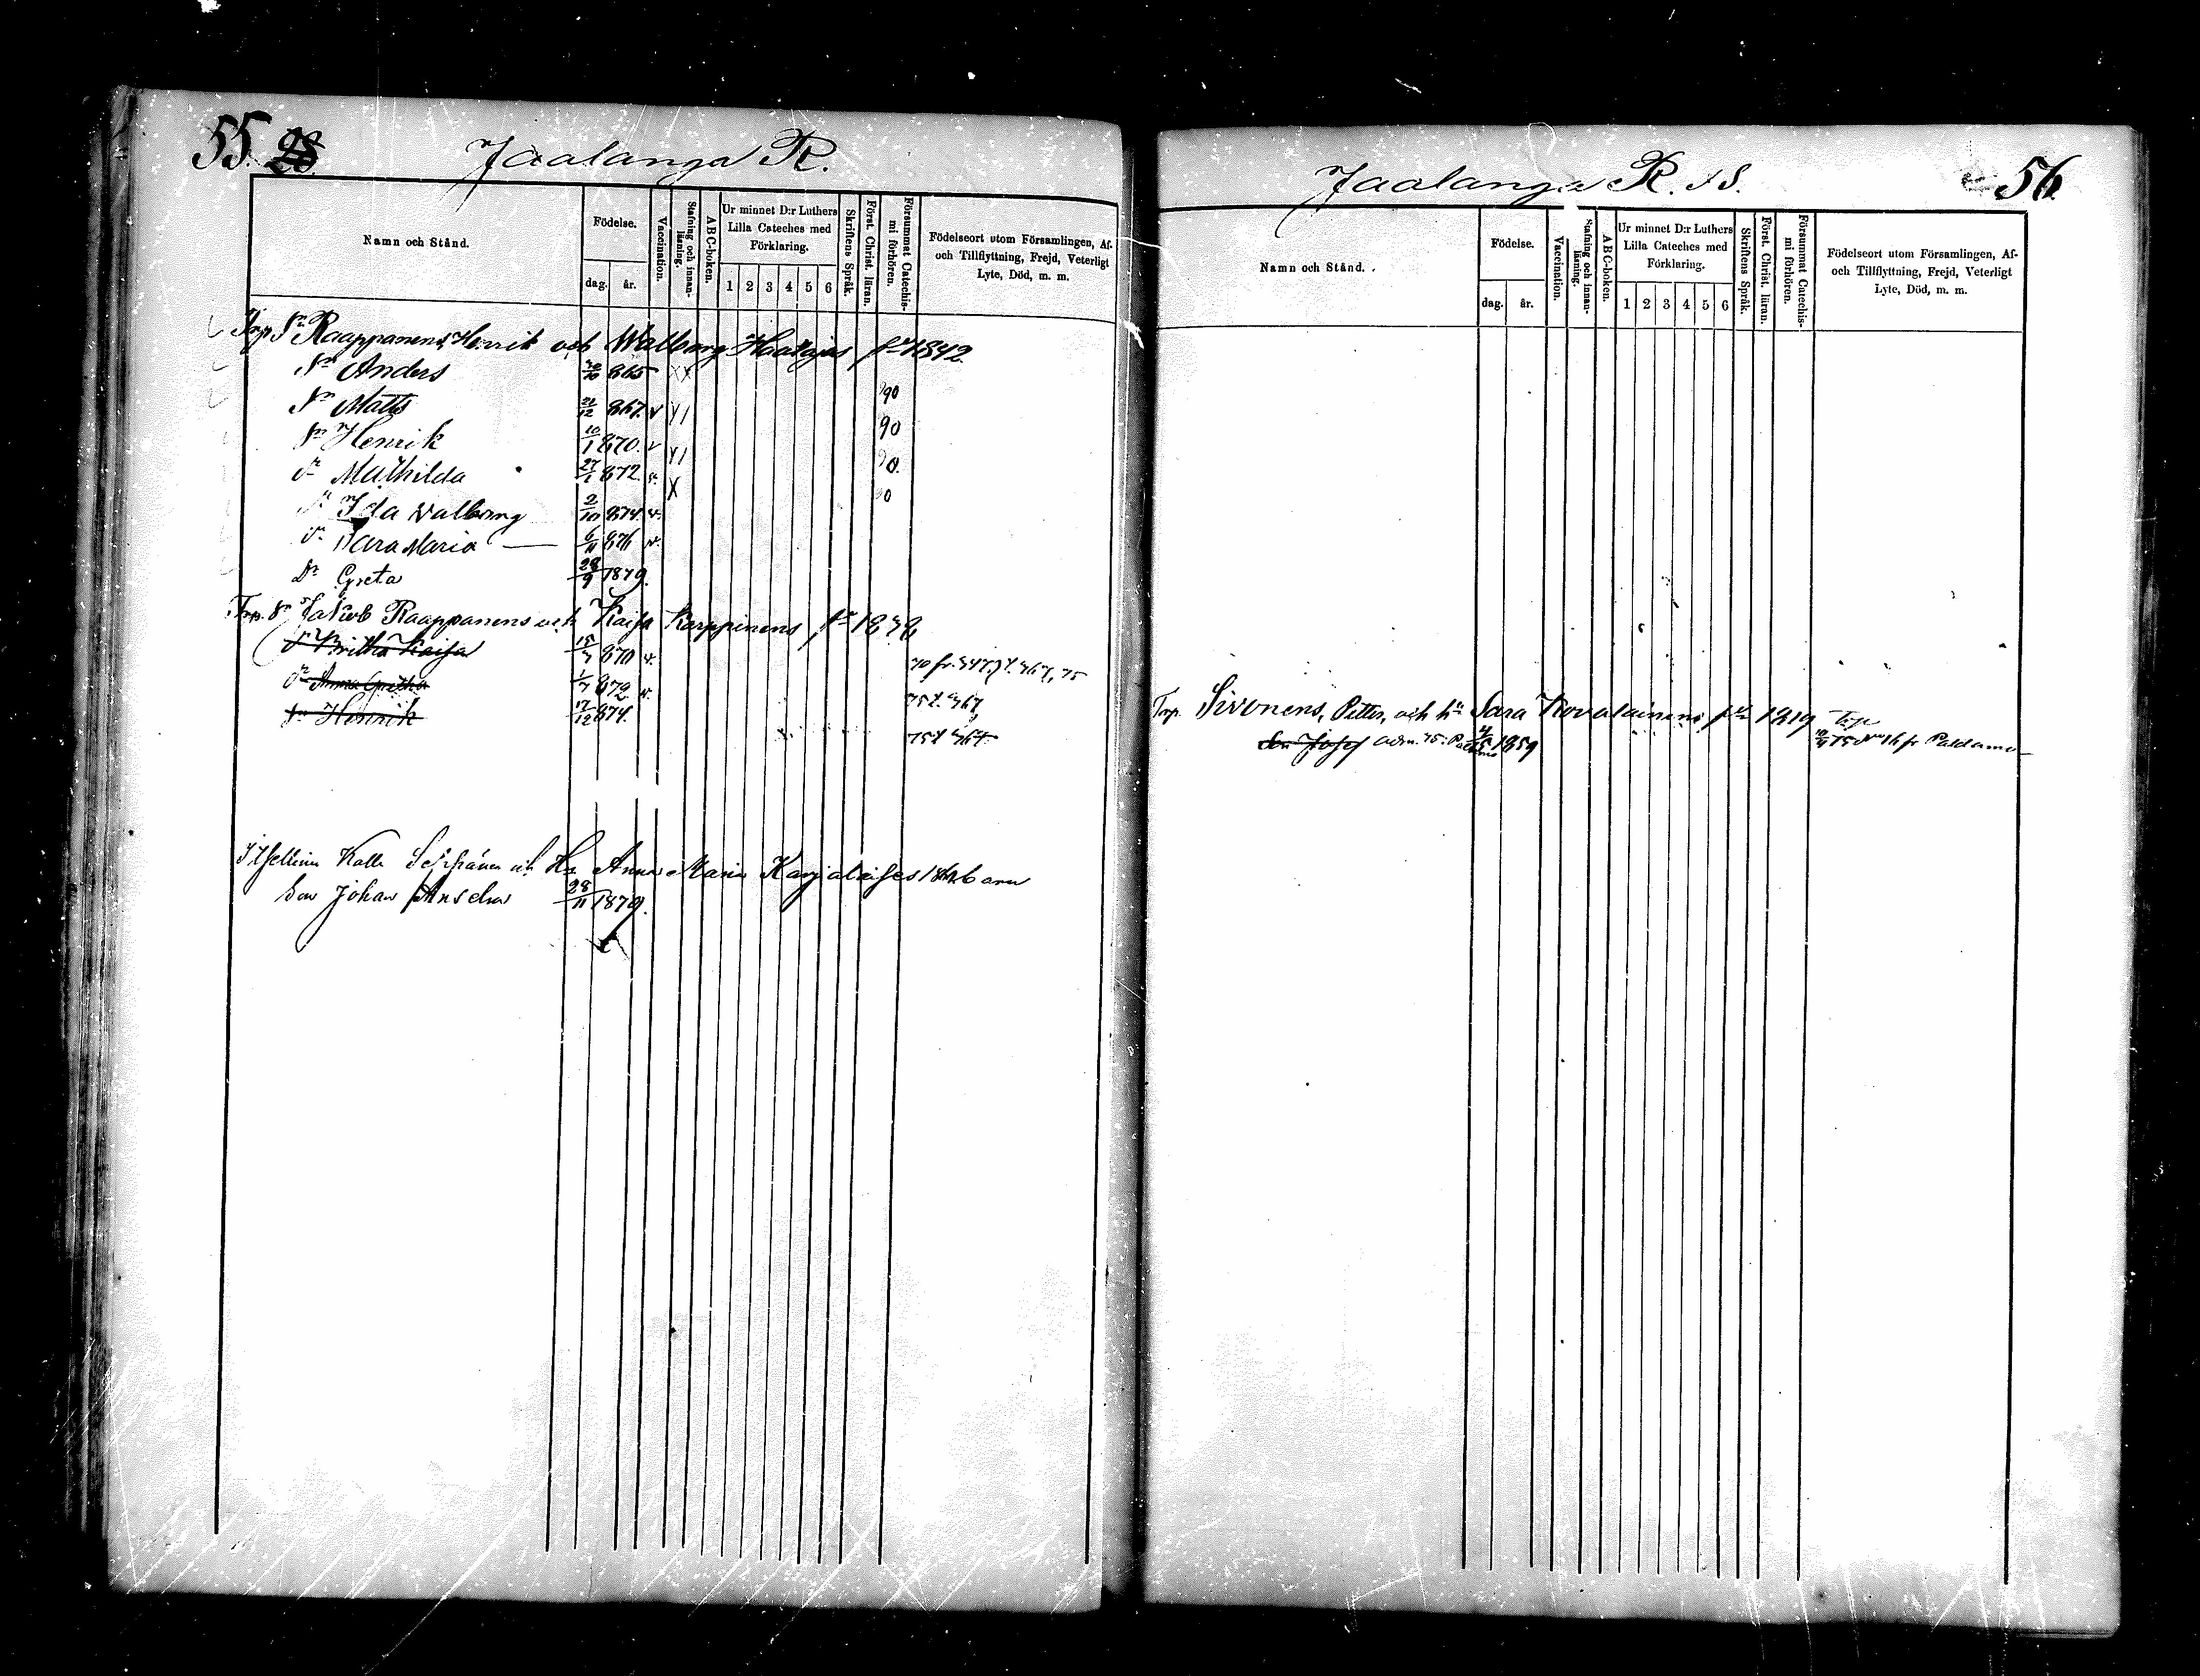 55. 28.
Jaalanga R.
Namn och Stånd.
Födelse.
dag.
år.
Vaccination.
Stafning och innan-läsning.
ABC-boken.
Ur minnet D:r Luthers
Lilla Cateches med
Förklaring.
1 2 3 4 5 6
Skriftens Språk.
Först. Christ. läran.
Försummat Catechis-mi förhören.
Födelseort utom Församlingen, Af-
och Tillflyttning, Frejd, Veterligt
Lyte, Död, m. m.
Raappanens, Henrik och Walborg Haatajas 1842
Anders 865 XX
Matts 21/12 867. v 90
Henrik 10/1 870. v 90
Mathilda 27/1 872. v. 0.
Ida Walborg 2/10 874. v. X 0
Sara Maria — 6/11 876 v.
Dr Greta 28/9 1879.
Jakob Raappanens och Kaisa Karppinens
Britha Kaisa 15/7 870 v. 70 fr. 347. t. 367, 75
Anna Gretha 1/7 872 v. 75 t. 367
Henrik 17/12 874. 75 t 367
Kalle och Hu Anna Maria Karjalaises barn
Son Johan Anselm 28/11 1879.
Jaalanga R. & S.
56.
Namn och Stånd.
Födelse.
dag.
år.
Vaccination.
Stafning och innan-läsning.
ABC-boken.
Ur minnet D:r Luthers
Lilla Cateches med
Förklaring.
1 2 3 4 5 6
Skriftens Språk.
Först. Christ. läran.
Försummat Catechis-mi förhören.
Födelseort utom Församlingen, Af-
och Tillflyttning, Frejd, Veterligt
Lyte, Död, m. m.
Sivonens, Petter, och hu Sara Kovalainens 1819
Son Josef adm. 75. 1859 75 16 fr Paldamo